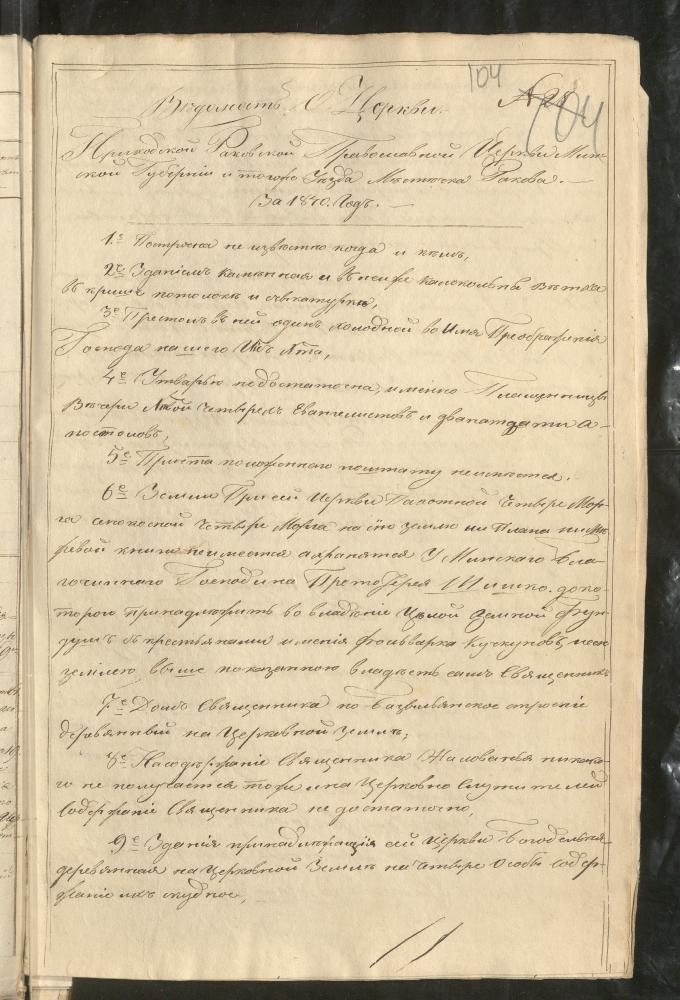 104
Вѣдомость О Церкви.
104
Приходской Раковской Православной Церкви Мин-
ской Губерніи и тогоже Уѣзда Мѣстечка Ракова.
За 1840. Годъ.
1.е Построена не извѣстно когда и кѣмъ,
2е Зданіемъ каменная и въ ней колокольня ветха
въ крыше потолокъ и
3е Престолъ въ ней одинъ холодной во Имя Преображенія
Господа нашего
4е Утварью недостаточна, именно Плащеницы
Вечери четырехъ Евангелистовъ и дванатдати а-
постоловъ;
5е Причта положеннаго по штату неимѣется.
6е Земли При сей Церкви Пахотной Четыре Мор-
га сенокосной Четыре Морга на сію землю ни Плана ни Ме-
жевой книги неимеется а хранятся У Минскаго Бла-
гочиннаго Господина Протоіерея Шишко. до ко-
торого принадлежитъ во владѣніе Целой Земной Фун-
душъ съ крестьянами имѣнія фольварка Кучкуновъ, 
землею выше показанною владѣетъ самъ Священникъ
7.е Домъ Священника по Базыльянское строеніе
деревянный на Церковной Землѣ;
8е На содержаніе Священника Жалованья никако-
го не получается тоже и на Церковно Служителей
Содержаніе Священника не достаточно,
9е Зданія принадлежащія сей Церкви Богодельня
деревянная на Церковной Землѣ на Четыре Особы Содер-
жаніе ихъ скудное,